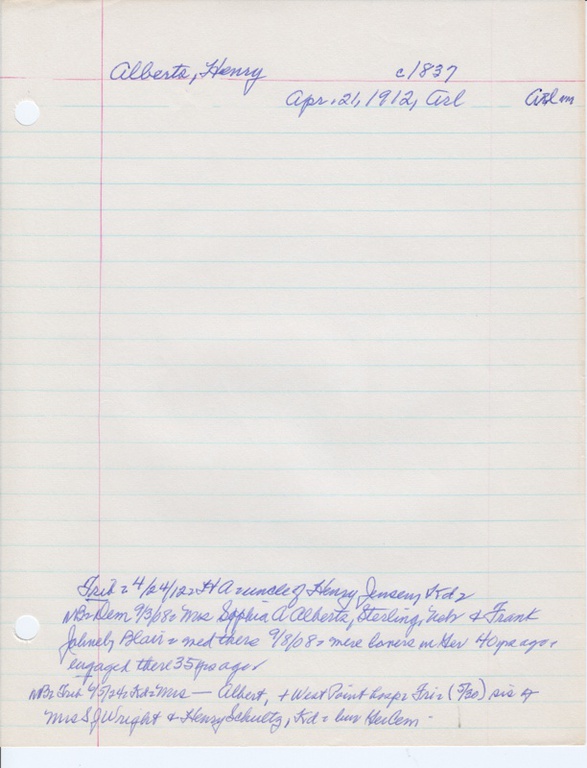 Alberts, Henry c1837
Apr. 21, 1912, Arl Arl m
Trib = 4/24/12 = H A = uncle of Henry Jensen, Kd =
NB = Dem 9/3/08 = Mrs Sophia A Alberts, Sterling, Nebr & Frank
Blair = med there 9/8/08 = were lovers in Ger 40 yrs ago,
engaged there 35 yrs ago
NB = Trib 4/5/24 = Kd = Mrs — Albert, + West Point hosp = Fri = (5/30) sis of
Mrs S J Wright & Henry Schultz, Kd = bur